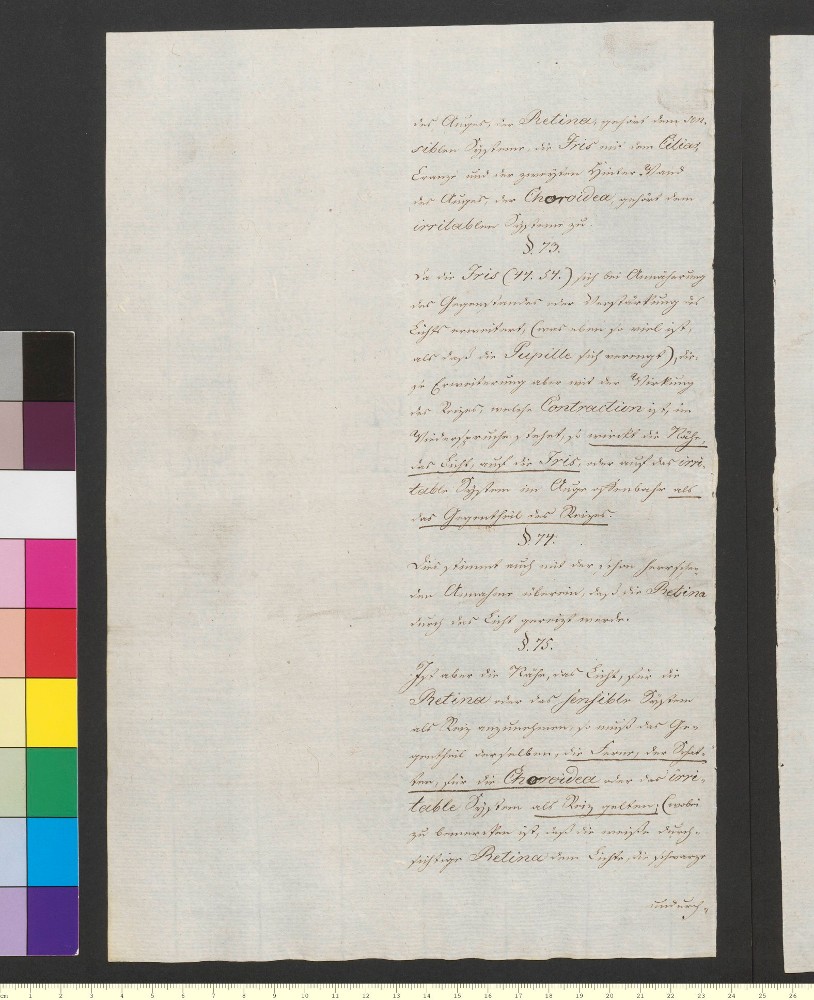 des Auges, der Retina, gehört dem sen,
siblen Systeme, die Iris mit dem Ciliar,
Cranze und der zweyten Hinter Wand
des Auges, der Choroidea, gehört dem
irritablen Systeme zu.
§. 73.
Da die Iris (47. 54.) sich bei Annäherung
des Gegenstandes oder Verstärkung des
Lichts erweitert, (was eben so viel ist,
als daß die Pupille sich verengt), die,
se Erweiterung aber mit der Wirkung
des Reizes, welche Contraction ist, im
Wiederspruche stehet, so wirckt die Nähe,
das Licht, auf die Iris, oder auf das irri,
table System im Auge offenbahr als
das Gegentheil des Reizes.
§. 74.
Dies stimmt auch mit der schon herrschen,
den Annahme überein, daß die Retina
durch das Licht gereizt werde.
§. 75.
Ist aber die Nähe, das Licht, für die
Retina oder das sensible System
als Reiz anzunehmen, so muß das Ge,
gentheil derselben, die Ferne, der Schat,
ten, für die Choroidea oder das irri,
table System als Reiz gelten; (wobei
zu bemerken ist, daß die weiße durch,
sichtige Retina dem Lichte, die schwarze
undurch,